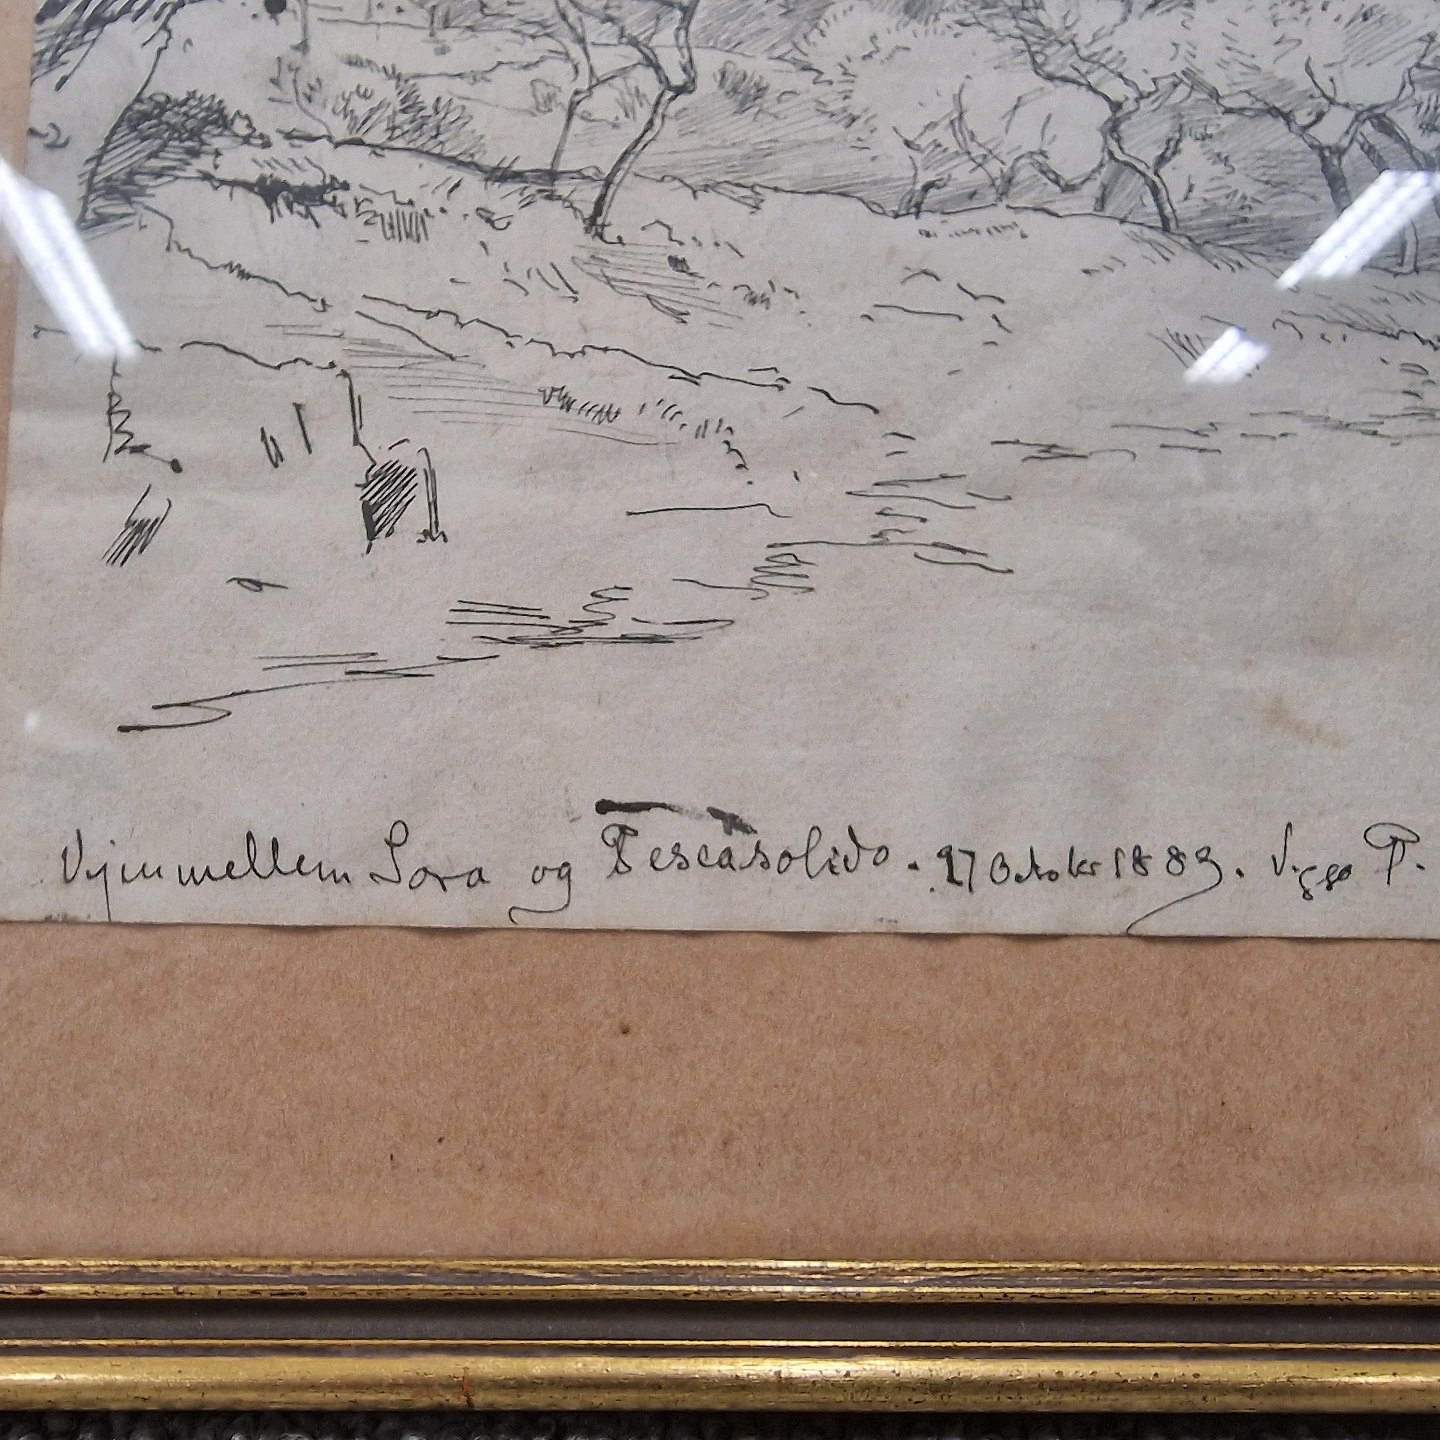 Vejimmellem Sora og Pescasolido. 27 Octobr 1883. Viggo P.